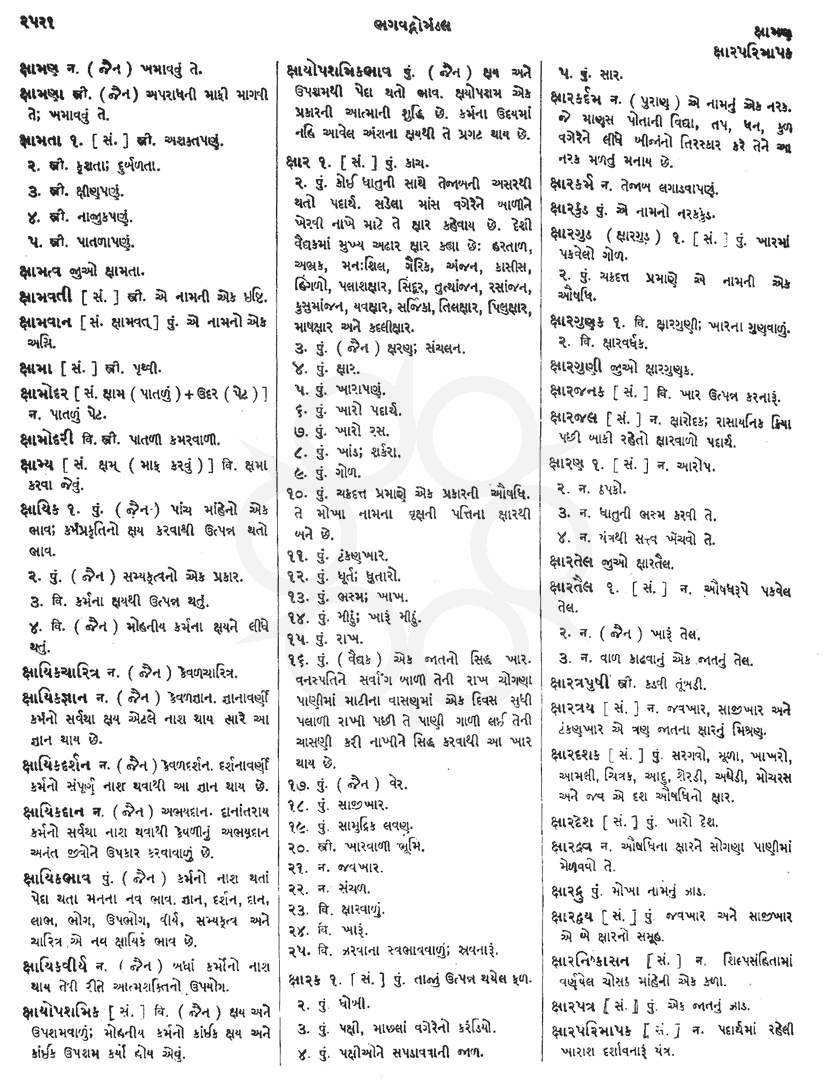 ૨૫૨૧
ભગવદ્ગોમંડલ
ક્ષામણ
ક્ષારપરિમાપક
ક્ષામણ ન. ( જૈન ) ખમાવવું તે.
ક્ષામણા સ્ત્રી. ( જૈન ) અપરાધની માફી માગવી
તે; ખમાવવું તે.
ક્ષામતા ૧. [ સં. ] સ્ત્રી. અશક્તપણું.
૨. સ્ત્રી. કૃશતા; દુર્બળતા.
૩. સ્ત્રી. ક્ષીણપણું.
૪. સ્ત્રી. નાજુકપણું.
૫. સ્ત્રી. પાતળાપણું.
ક્ષામત્વ જુઓ ક્ષામતા.
ક્ષામવતી [ સં. ] સ્ત્રી. એ નામની એક ઇષ્ટિ.
ક્ષામવાન [ સં. ક્ષામવત્ ] પું. એ નામનો એક
અગ્નિ.
ક્ષામા [ સં. ] સ્ત્રી. પૃથ્વી.
ક્ષામોદર [ સં. ક્ષામ ( પાતળું ) + ઉદર ( પેટ ) ]
ન. પાતળું પેટ.
ક્ષામોદરી વિ. સ્ત્રી. પાતળી કમરવાળી.
ક્ષામ્ય [ સં. ક્ષમ્ ( માફ કરવું ) ] વિ. ક્ષમા
કરવા જેવું.
ક્ષાયિક ૧. પું. ( જૈન ) પાંચ માંહેનો એક
ભાવ; કર્મપ્રકૃતિનો ક્ષય કરવાથી ઉત્પન્ન થતો
ભાવ.
૨. પું. ( જૈન ) સમ્યક્ત્વનો એક પ્રકાર.
૩. વિ. કર્મના ક્ષયથી ઉત્પન્ન થતું.
૪. વિ. ( જૈન ) મોહનીય કર્મના ક્ષયને લીધે
થતું.
ક્ષાયિકચારિત્ર ન. ( જૈન ) કેવળચારિત્ર.
ક્ષાયિકજ્ઞાન ન. ( જૈન ) કેવળજ્ઞાન. જ્ઞાનાવર્ણી
કર્મનો સર્વથા ક્ષય એટલે નાશ થાય ત્યારે આ
જ્ઞાન થાય છે.
ક્ષાયિકદર્શન ન. ( જૈન ) કેવળદર્શન. દર્શનાવર્ણી
કર્મનો સંપૂર્ણ નાશ થવાથી આ જ્ઞાન થાય છે.
ક્ષાયિકદાન ન. ( જૈન ) અભયદાન. દાનાંતરાય
કર્મનો સર્વથા નાશ થવાથી કેવળીનું અભયદાન
અનંત જીવોને ઉપકાર કરવાવાળું છે.
ક્ષાયિકભાવ પું. ( જૈન ) કર્મનો નાશ થતાં
પેદા થતા મનના નવ ભાવ. જ્ઞાન, દર્શન, દાન,
લાભ, ભોગ, ઉપભોગ, વીર્ય, સમ્યક્ત્વ અને
ચારિત્ર એ નવ ક્ષાયિક ભાવ છે.
ક્ષાયિકવીર્ય ન. ( જૈન ) બધાં કર્મોનો નાશ
થાય તેવી રીતે આત્મશક્તિનો ઉપયોગ.
ક્ષાયોપશમિક [ સં. ] વિ. ( જૈન ) ક્ષય અને
ઉપશમવાળું; મોહનીય કર્મનો કાંઈક ક્ષય અને
કાંઈક ઉપશમ કર્યો હોય એવું.
ક્ષાયોપશમિકભાવ પું. ( જૈન ) ક્ષય અને
ઉપશમથી પેદા થતો ભાવ. ક્ષયોપશમ એક
પ્રકારની આત્માની શુદ્ધિ છે. કર્મના ઉદયમાં
નહિ આવેલ અંશના ક્ષયથી તે પ્રગટ થાય છે.
ક્ષાર ૧. [ સં. ] પું. કાચ.
૨. પું. કોઈ ધાતુની સાથે તેજાબની અસરથી
થતો પદાર્થ. સડેલા માંસ વગેરેને બાળીને
ખેરવી નાખે માટે તે ક્ષાર કહેવાય છે. દેશી
વૈદ્યકમાં મુખ્ય અઢાર ક્ષાર કહ્યા છેઃ હરતાળ,
અભ્રક, મનઃશિલ, ગૈરિક, અંજન, કાસીસ,
હિંગળો, પલાશક્ષાર, સિંદૂર, તુત્થાંજન, રસાંજન,
કુસુમાંજન, યવક્ષાર, સર્જિકા, તિલક્ષાર, પિલુક્ષાર,
માષક્ષાર અને કદલીક્ષાર.
૩. પું. ( જૈન ) ક્ષરણ; સંચલન.
૪. પું. ક્ષાર.
૫. પું. ખારાપણું.
૬. પું. ખારો પદાર્થ.
૭. પું. ખારો રસ.
૮. પું. ખાંડ; શર્કરા.
૯. પું. ગોળ.
૧૦. પું. ચક્રદત્ત પ્રમાણે એક પ્રકારની ઔષધિ.
તે મોખા નામના વૃક્ષની પત્તિના ક્ષારથી
બને છે.
૧૧. પું. ટંકણખાર.
૧૨. પું. ધૂર્ત; ધુતારો.
૧૩. પું. ભસ્મ; ખાખ.
૧૪. પું. મીઠું; ખારૂં મીઠું.
૧૫. પું. રાખ.
૧૬. પું. ( વૈદ્યક ) એક જાતનો સિદ્ધ ખાર.
વનસ્પતિને સર્વાંગ બાળી તેની રાખ ચોગણા
પાણીમાં માટીના વાસણમાં એક દિવસ સુધી
પલાળી રાખી પછી તે પાણી ગાળી લઈ તેની
ચાસણી કરી નાખીને સિદ્ધ કરવાથી આ ખાર
થાય છે.
૧૭. પું. ( જૈન ) વેર.
૧૮. પું. સાજીખાર.
૧૯. પું. સામુદ્રિક લવણ.
૨૦. સ્ત્રી. ખારવાળી ભૂમિ.
૨૧. ન. જવખાર.
૨૨. ન. સંચળ.
૨૩. વિ. ક્ષારવાળું.
૨૪. વિ. ખારૂં.
૨૫. વિ. ઝરવાના સ્વભાવવાળું; સ્રવનારૂં.
ક્ષારક ૧. [ સં. ] પું. તાજું ઉત્પન્ન થયેલ ફળ.
૨. પું. ધોબી.
૩. પું. પક્ષી, માછલાં વગેરેનો કરંડિયો.
૪. પું. પક્ષીઓને સપડાવવાની જાળ.
૫. પું. સાર.
ક્ષારકર્દમ ન. ( પુરાણ ) એ નામનું એક નરક.
જે માણસ પોતાની વિદ્યા, તપ, ધન, કુળ
વગેરેને લીધે બીજાનો તિરસ્કાર કરે તેને આ
નરક મળતું મનાય છે.
ક્ષારકર્મ ન. તેજાબ લગાડવાપણું.
ક્ષારકુંડ પું. એ નામનો નરકકુંડ.
ક્ષારગુડ ( ક્ષારગુડ઼ ) ૧. [ સં. ] પું. ખારમાં
પકવેલો ગોળ.
૨. પું. ચક્રદત્ત પ્રમાણે એ નામની એક
ઔષધિ.
ક્ષારગુણક ૧. વિ. ક્ષારગુણી; ખારના ગુણવાળું.
૨. વિ. ક્ષારવર્ધક.
ક્ષારગુણી જુઓ ક્ષારગુણક.
ક્ષારજનક [ સં. ] વિ. ખાર ઉત્પન્ન કરનારૂં.
ક્ષારજલ [ સં. ] ન. ક્ષારોદક; રાસાયનિક ક્રિયા
પછી બાકી રહેતો ક્ષારવાળો પદાર્થ.
ક્ષારણ ૧. [ સં. ] ન. આરોપ.
૨. ન. ઠપકો.
૩. ન. ધાતુની ભસ્મ કરવી તે.
૪. ન. યંત્રથી સત્ત્વ ખેંચવો તે.
ક્ષારતેલ જુઓ ક્ષારતૈલ.
ક્ષારતૈલ ૧. [ સં. ] ન. ઔષધરૂપે પકવેલ
તેલ.
૨. ન. ( જૈન ) ખારૂં તેલ.
૩. ન. વાળ કાઢવાનું એક જાતનું તેલ.
ક્ષારત્રપુષી સ્ત્રી. કડવી તૂંબડી.
ક્ષારત્રય [ સં. ] ન. જવખાર, સાજીખાર અને
ટંકણખાર એ ત્રણ જાતના ક્ષારનું મિશ્રણ.
ક્ષારદશક [ સં. ] પું. સરગવો, મૂળા, ખાખરો,
આમલી, ચિત્રક, આદુ, શેરડી, અઘેડી, મોચરસ
અને જવ એ દશ ઔષધિનો ક્ષાર.
ક્ષારદેશ [ સં. ] પું. ખારો દેશ.
ક્ષારદ્રવ ન. ઔષધિના ક્ષારને સોગણા પાણીમાં
મેળવવો તે.
ક્ષારદ્રુ પું. મોખા નામનું ઝાડ.
ક્ષારદ્વય [ સં. ] પું. જવખાર અને સાજીખાર
એ બે ક્ષારનો સમૂહ.
ક્ષારનિષ્કાસન [ સં. ] ન. શિલ્પસંહિતામાં
વર્ણવેલ ચોસઠ માંહેની એક કળા.
ક્ષારપત્ર [ સં. ] પું. એક જાતનું ઝાડ.
ક્ષારપરિમાપક [ સં. ] ન. પદાર્થમાં રહેલી
ખારાશ દર્શાવનારૂં યંત્ર.